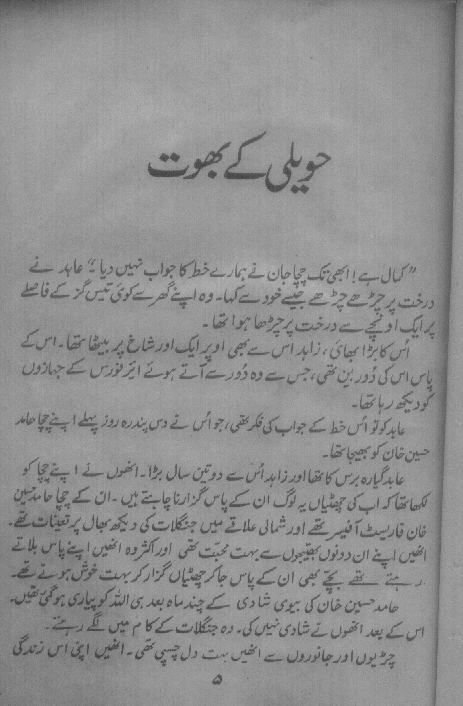 حویلی کے بھوت
”کمال ہے! ابھی تک چچا جان نے ہمارے خط کا جواب نہیں دیا۔“ عابد نے
درخت پر چڑھے چڑھے جیسے خود سے کہا۔ وہ اپنے گھر سے کوئی تیس گز کے فاصلے
پر ایک اونچے سے درخت پر چڑھا ہوا تھا۔
اُس کا بڑا بھائی، زاہد اس سے بھی اوپر ایک اور شاخ پر بیٹھا تھا۔ اس کے
پاس اس کی دُور بین تھی، جس سے وہ دُور سے آتے ہوئے ایر فورس کے جہازوں
کو دیکھ رہا تھا۔
عابد کو تو اُس خط کے جواب کی فکر تھی، جو اُس نے دس پندرہ روز پہلے اپنے چچا حامد
حسین خان کو بھیجا تھا۔
عابد گیارہ برس کا تھا اور زاہد اُس سے دو تین سال بڑا۔ انھوں نے اپنے چچا کو
لکھا تھا کہ اب کی چھٹیاں یہ لوگ ان کے پاس گزارنا چاہتے ہیں۔ ان کے چچا حامد حسین
خان فارسٹ آفیسر تھے اور شمالی علاقے میں جنگلات کی دیکھ بھال پر تعینات تھے۔
انھیں اپنے ان دونوں بھتیجوں سے بہت محبت تھی اور اکثر وہ انھیں اپنے پاس بلاتے
رہتے تھے بچے بھی ان کے پاس جا کر چھٹیاں گزار کر بہت خوش ہوتے تھے۔
حامد حسین خان کی بیوی شادی کے چند ماہ بعد ہی اللہ کو پیاری ہو گئی تھیں۔
اس کے بعد انھوں نے شادی نہیں کی۔ وہ جنگلات کے کام میں لگے رہتے۔
چڑیوں اور جانوروں سے انھیں بہت دل چسپی تھی۔ انھیں اپنی اس زندگی
۵